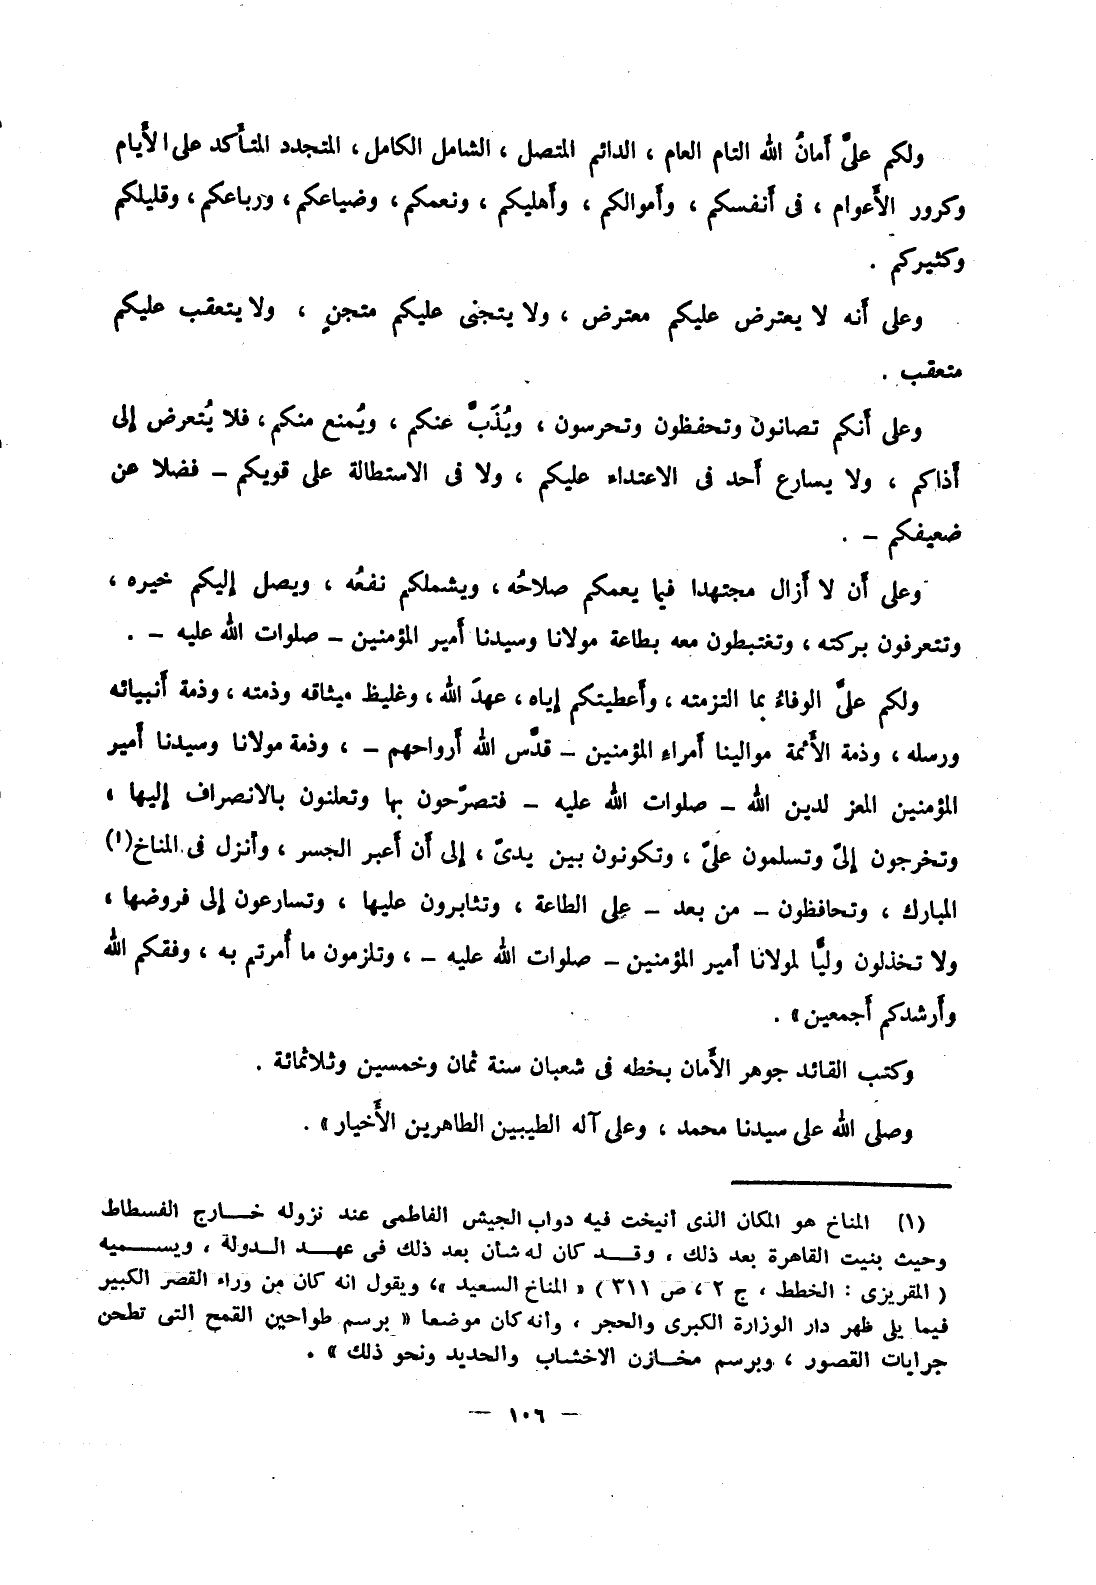 ولكم علىَّ أَمانُ الله التام العام ، الدائم المتصل ، الشامل الكامل ، المتجدد المتأَكد على الأَيام
وكرور الأَعوام ، فى أَنفسكم ، وأَموالكم ، وأَهليكم ، ونعمكم ، وضياعكم ، ورباعكم ، وقليلكم
وكثيركم .
وعلى أَنه لا يعترض عليكم معترض ، ولا يتجنى عليكم متجنٍ ، ولا يتعقب عليكم
متعقب .
وعلى أَنكم تصانون وتحفظون وتحرسون ، ويُذَبّ عنكم ، ويُمنع منكم ، فلا يُتعرض إلى
أَذاكم ، ولا يسارع أَحد فى الاعتداء عليكم ، ولا فى الاستطالة على قويكم – فضلا عن
ضعيفكم – .
وعلى أَن لا أَزال مجتهدا فيما يعمكم صلاحُه ، ويشملكم نفعُه ، ويصل إليكم خيره ،
وتتعرفون بركته ، وتغتبطون معه بطاعة مولانا وسيدنا أَمير المؤمنين – صلوات الله عليه – .
ولكم علىَّ الوفاءُ بما التزمته ، وأَعطيتكم إياه ، عهدَ الله ، وغليظ ميثاقه وذمته ، وذمة أَنبيائه
ورسله ، وذمة الأَئمة موالينا أَمراء المؤمنين – قدَّس الله أَرواحهم – ، وذمة مولانا وسيدنا أَمير
المؤمنين المعز لدين الله – صلوات الله عليه – فتصرّحون بها وتعلنون بالانصراف إليها ،
وتخرجون إلىّ وتسلمون علىّ ، وتكونون بين يدىّ ، إلى أَن أَعبر الجسر ، وأَنزل فى المناخ(١)
المبارك ، وتحافظون – من بعد – على الطاعة ، وتثابرون عليها ، وتسارعون إلى فروضها ،
ولا تخذلون وليًّا لمولانا أَمير المؤمنين – صلوات الله عليه – ، وتلزمون ما أُمرتم به ، وفقكم الله
وأَرشدكم أَجمعين» .
وكتب القائد جوهر الأَمان بخطه فى شعبان سنة ثمان وخمسين وثلاثمائة .
وصلى الله على سيدنا محمد ، وعلى آله الطيبين الطاهرين الأَخيار» .
(١) المناخ هو المكان الذى أنيخت فيه دواب الجيش الفاطمى عند نزوله خارج الفسطاط
وحيث بنيت القاهرة بعد ذلك ، وقد كان له شأن بعد ذلك فى عهد الدولة ، ويسميه
( المقريزى : الخطط ، ج ٢ ، ص ٣١١ ) « المناخ السعيد »، ويقول انه كان من وراء القصر الكبير
فيما يلى ظهر دار الوزارة الكبرى والحجر ، وأنه كان موضعا « برسم طواحين القمح التى تطحن
جرايات القصور ، وبرسم مخازن الاخشاب والحديد ونحو ذلك » .
– ١٠٦ –